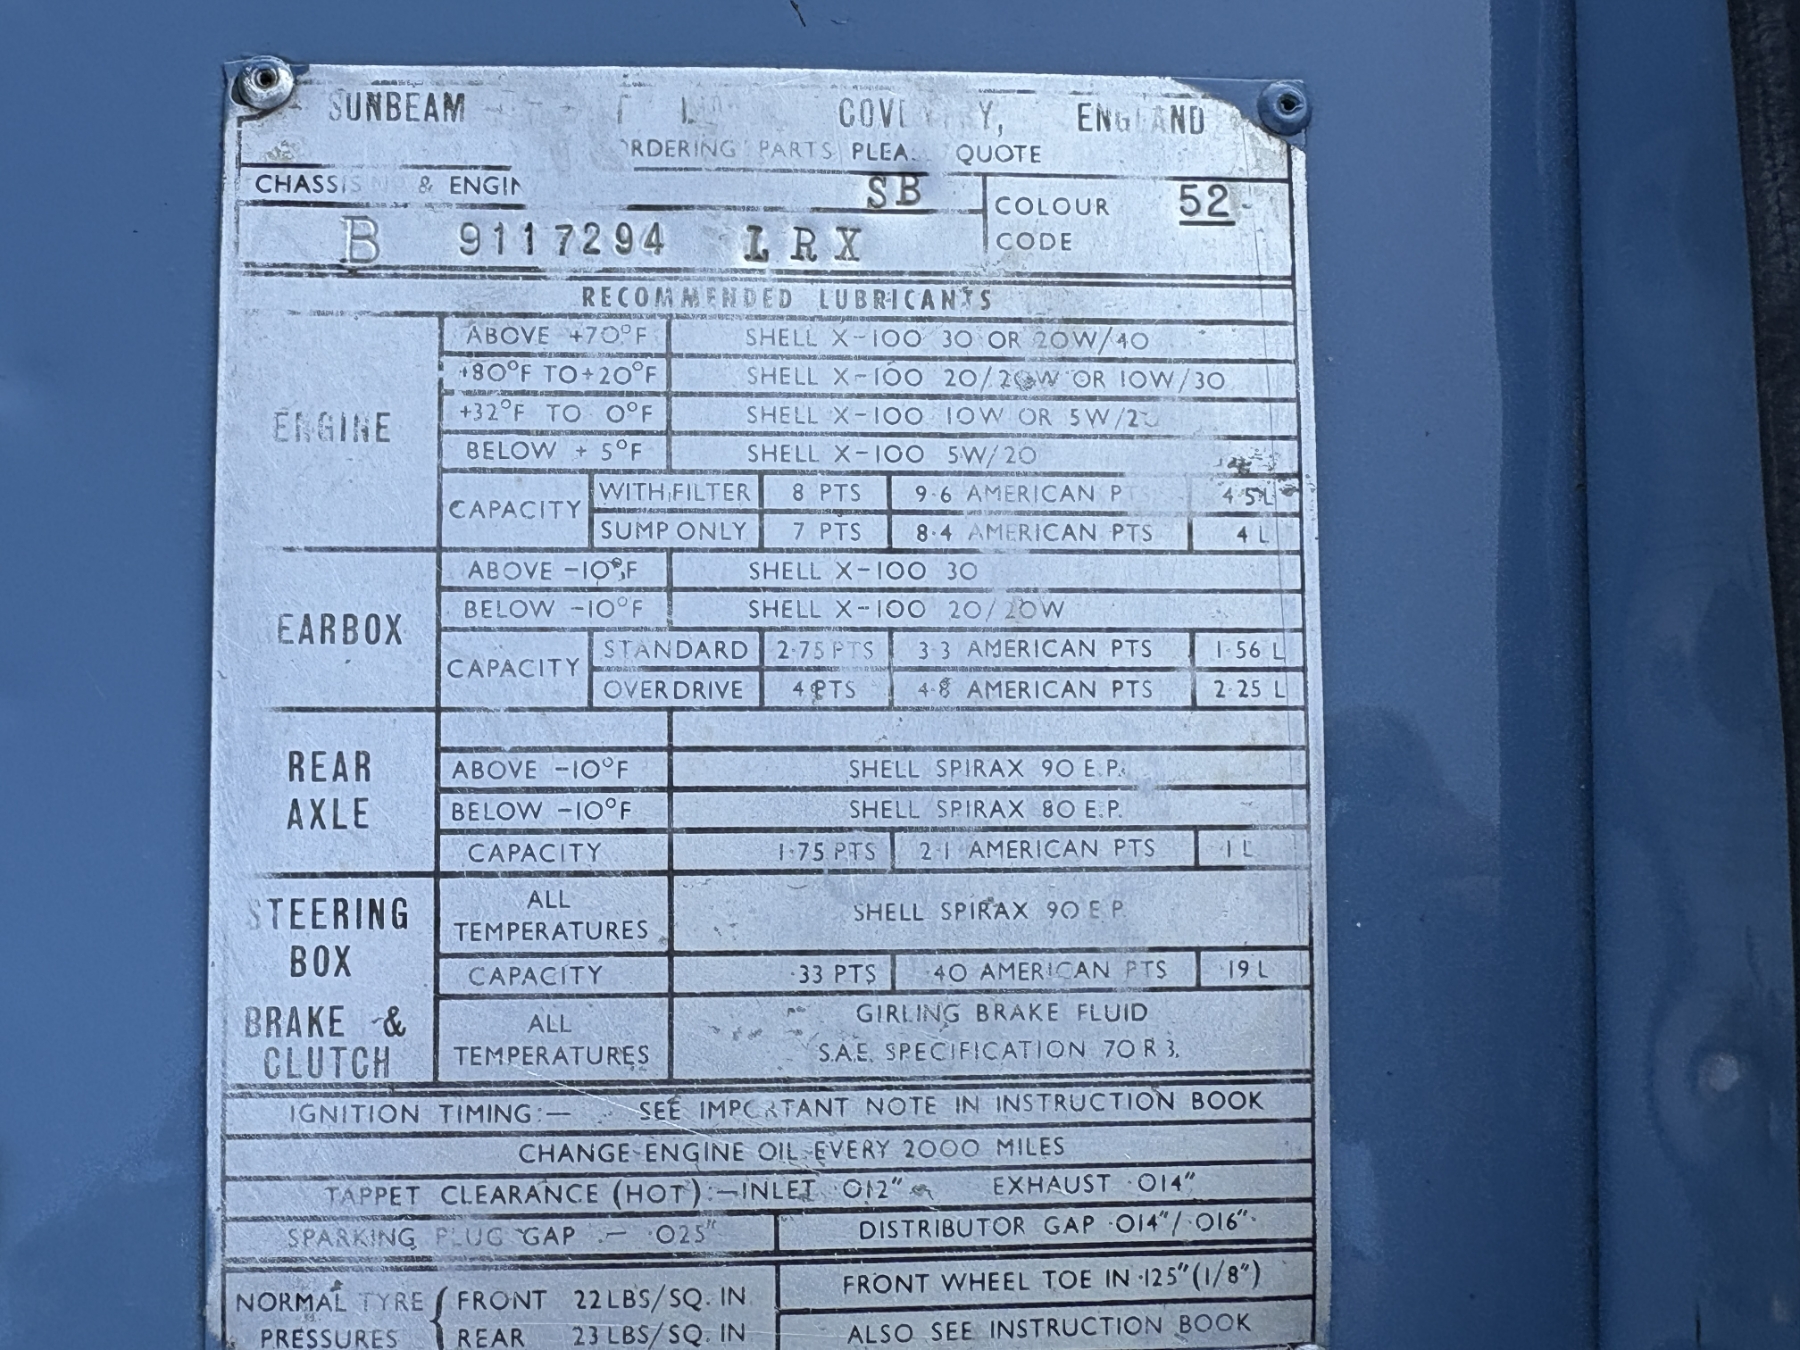 SUNBEAM COVENTRY, ENGLAND
ORDERING PARTS PLEASE QUOTE
CHASSIS NO & ENGIN SB
B 9117294 LRX
COLOUR CODE 52
RECOMMENDED LUBRICANTS
ENGINE
ABOVE +70°F SHELL X-100 30 OR 20W/40
+80°F TO +20°F SHELL X-100 20/20W OR 10W/30
+32°F TO 0°F SHELL X-100 10W OR 5W/20
BELOW + 5°F SHELL X-100 5W/20
CAPACITY
WITH FILTER 8 PTS 9·6 AMERICAN PT 4·5 L
SUMP ONLY 7 PTS 8·4 AMERICAN PTS 4 L
EARBOX
ABOVE -10°F SHELL X-100 30
BELOW -10°F SHELL X-100 20/20W
CAPACITY
STANDARD 2·75 PTS 3·3 AMERICAN PTS 1·56 L
OVERDRIVE 4 PTS 4·8 AMERICAN PTS 2·25 L
REAR
AXLE
ABOVE -10°F SHELL SPIRAX 90 E.P.
BELOW -10°F SHELL SPIRAX 80 E.P.
CAPACITY 1·75 PTS 2·1 AMERICAN PTS 1 L
STEERING
BOX
ALL
TEMPERATURES
SHELL SPIRAX 90 E.P.
CAPACITY ·33 PTS ·40 AMERICAN PTS ·19 L
BRAKE &
CLUTCH
ALL
TEMPERATURES
GIRLING BRAKE FLUID
S.A.E. SPECIFICATION 70 R 3.
IGNITION TIMING:— SEE IMPORTANT NOTE IN INSTRUCTION BOOK
CHANGE ENGINE OIL EVERY 2000 MILES
TAPPET CLEARANCE (HOT):—INLET ·012" EXHAUST ·014"
SPARKING PLUG GAP :— ·025" DISTRIBUTOR GAP ·014"/·016"
NORMAL TYRE
PRESSURES
FRONT 22 LBS/SQ. IN
REAR 23 LBS/SQ. IN
FRONT WHEEL TOE IN ·125" (1/8")
ALSO SEE INSTRUCTION BOOK